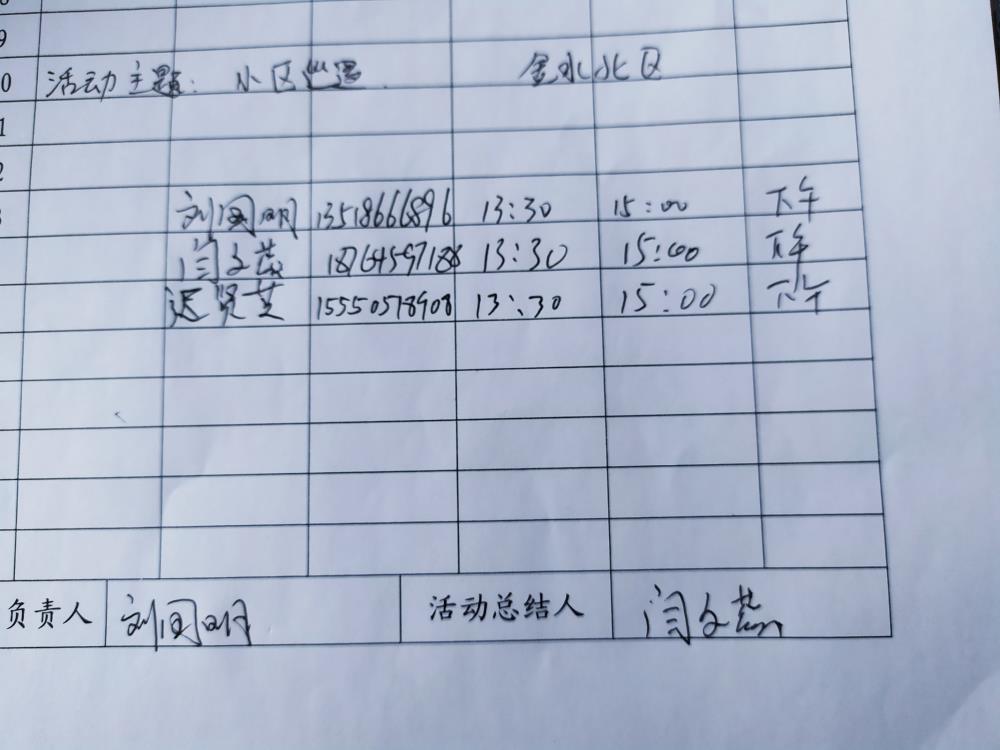 9
0 活动主题: 小区巡逻. 金水北区
1
2
3 刘国明 13518666896 13:30 15:00 下午
闫文蕊 18764597186 13:30 15:00 下午
迟贤芝 15550578908 13:30 15:00 下午
负责人 刘国明 活动总结人 闫文蕊